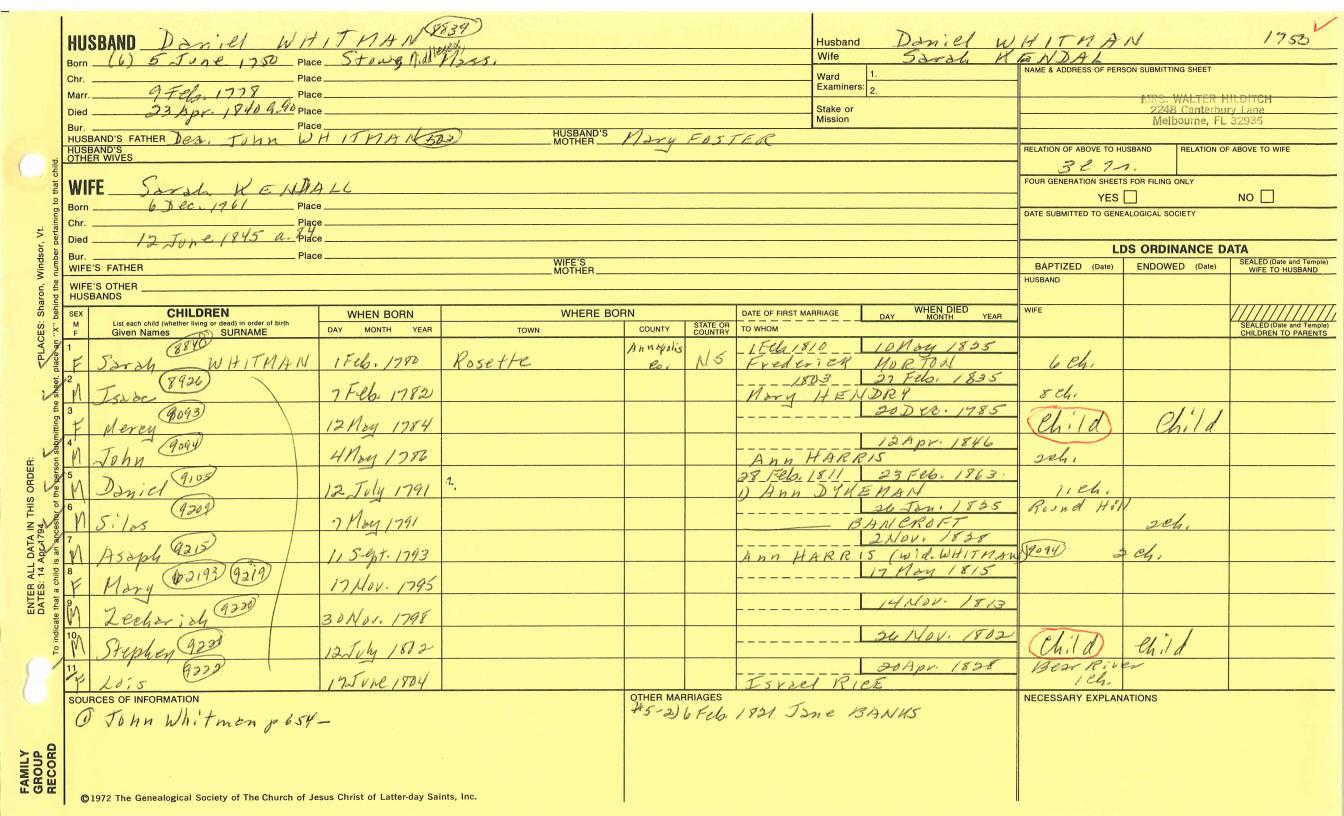 HUSBAND Daniel WHITMAN 8839
Born (6) 5 June 1750 Place Stowe, Middlesex, Mass.
Chr. Place
Marr. 9 Feb. 1778 Place
Died 23 Apr. 1840 a.90 Place
Bur. Place
HUSBAND'S FATHER Dea. John WHITMAN HUSBAND'S MOTHER Mary FOSTER
HUSBAND'S OTHER WIVES
Husband Daniel WHITMAN 1750
Wife Sarah KENDAL
Ward Examiners: 1.
2.
Stake or Mission
NAME & ADDRESS OF PERSON SUBMITTING SHEET
MRS. WALTER HILDITCH
2248 Canterbury Lane
Melbourne, FL 32935
RELATION OF ABOVE TO HUSBAND RELATION OF ABOVE TO WIFE
FOUR GENERATION SHEETS FOR FILING ONLY
YES NO
DATE SUBMITTED TO GENEALOGICAL SOCIETY
WIFE Sarah KENDALL
Born 6 Dec. 1761 Place
Chr. Place
Died 12 June 1845 a.84 Place
Bur. Place
WIFE'S FATHER WIFE'S MOTHER
WIFE'S OTHER HUSBANDS
LDS ORDINANCE DATA
BAPTIZED (Date) ENDOWED (Date) SEALED (Date and Temple) WIFE TO HUSBAND
HUSBAND
WIFE
SEALED (Date and Temple) CHILDREN TO PARENTS
SEX M F CHILDREN WHEN BORN WHERE BORN DATE OF FIRST MARRIAGE WHEN DIED
List each child (whether living or dead) in order of birth
Given Names SURNAME DAY MONTH YEAR TOWN COUNTY STATE OR COUNTRY TO WHOM DAY MONTH YEAR
1 F Sarah 8840 WHITMAN 1 Feb. 1780 Rosette Annapolis co. NS 1 Feb 1810 10 May 1825
Frederick MORTON 6 ch.
2 M Isaac 8926 7 Feb 1782 1803 27 Feb. 1835
Mary HENDRY 8 ch.
3 F Mercy 9093 12 May 1784 20 Dec. 1785 Child Child
4 M John 9094 4 May 1786 12 Apr. 1846
Ann HARRIS 2 ch.
5 M Daniel 9105 12 July 1791 ?. 28 Feb. 1811 23 Feb. 1863
1) Ann DYKEMAN 11 ch.
6 M Silas 9209 7 May 1791 26 Jan. 1825 Round Hill
BANCROFT 2 ch.
7 M Asaph 9215 11 Sept. 1793 2 Nov. 1828
Ann HARRIS (wid. WHITMAN) 9094 2 ch.
8 F Mary 62193 9219 17 Nov. 1795 17 May 1815
9 M Zechariah 9220 30 Nov. 1798 14 Nov. 1813
10 M Stephen 9221 12 July 1802 26 Nov. 1802 Child Child
11 F Lois 9222 17 June 1804 20 Apr. 1828 Bear River
Israel RICE 1 ch.
SOURCES OF INFORMATION
① John Whitman p 654-
OTHER MARRIAGES
#5-2) 6 Feb 1821 Jane BANKS
NECESSARY EXPLANATIONS
©1972 The Genealogical Society of The Church of Jesus Christ of Latter-day Saints, Inc.
FAMILY GROUP RECORD
ENTER ALL DATA IN THIS ORDER:
DATES: 14 Apr 1794 PLACES: Sharon, Windsor, Vt.
To indicate that a child is an ancestor of the person submitting the sheet, place an "X" behind the number pertaining to that child.